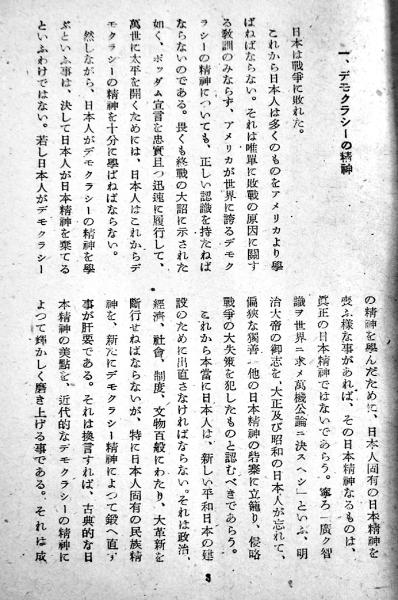 一、デモクラシーの精神
日本は戰爭に敗れた。
これから日本人は多くのものをアメリカより學
ばねばならない。それは唯單に敗戰の原因に關す
る敎訓のみならず、アメリカが世界に誇るデモク
ラシーの精神についても、正しい認識を持たねば
ならないのである。畏くも終戰の大詔に示された
如く、ポツダム宣言を忠實且つ迅速に履行して、
萬世に太平を開くためには、日本人はこれからデ
モクラシーの精神を十分に學ばねばならない。
然しながら、日本人がデモクラシーの精神を學
ぶといふ事は、決して日本人が日本精神を棄てる
といふわけではない。若し日本人がデモクラシー
の精神を學んだために、日本人固有の日本精神を
喪ふ樣な事があれば、その日本精神なるものは、
眞正の日本精神ではないであらう。寧ろ「廣ク智
識ヲ世界ニ求メ萬機公論ニ決スヘシ」といふ、明
治大帝の御志を、大正及び昭和の日本人が忘れて、
偏狹な獨善一他の日本精神の砦寨に立籠り、侵略
戰爭の大失策を犯したものと認むべきであらう。
これから本當に日本人は、新しい平和日本の建
設のために出直さなければならない。それは政治、
經濟、社會、制度、文物百般にわたり、大革新を
斷行せねばならないが、特に日本人固有の民族精
神を、新たにデモクラシー精神によつて鍛へ直す
事が肝要である。それは換言すれば、古典的な日
本精神の美點を、近代的なデモクラシーの精神に
よつて輝かしく磨き上げる事である。それは成
3